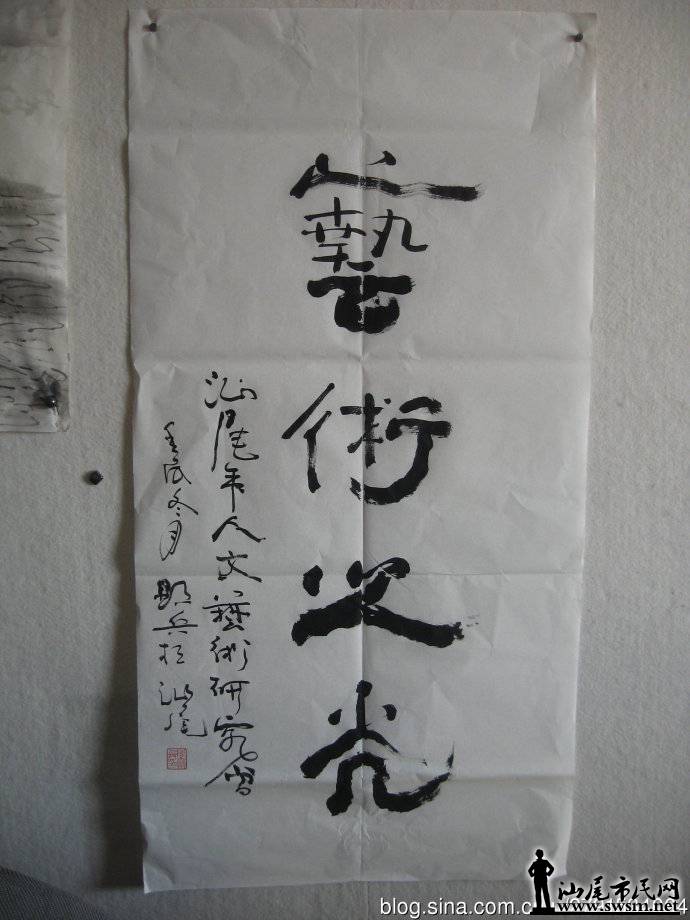 藝術之光
汕尾市人文藝術研究會
壬辰冬月 兵於汕尾
汕尾市民网
www.swsm.net
blog.sina.com.cn